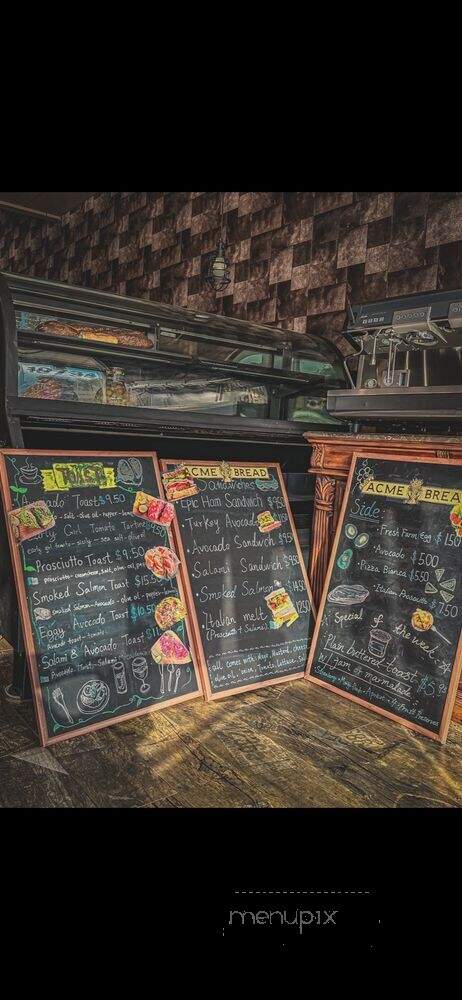 TOAST
Avocado Toast $9.50
Early Girl Tomato Tartine
early girl tomato
Prosciutto Toast $9.50
Smoked Salmon Toast $15.50
Eggy Avocado Toast $10.50
avocado toast - tomato
Salami & Avocado Toast
ACME BREAD
Sandwiches
Epic Ham Sandwich
Turkey Avocado
Avocado Sandwich $950
Salami Sandwich $950
Smoked Salmon
Italian melt
(Prosciutto & Salami)
all comes with Mayo, Mustard, cheese
olive oil, onion, Tomato, Lettuce, Salt
ACME BREA
Side:
Fresh Farm Egg $150
Avocado $500
Pizza Bianca $550
Italian Prosciutto $750
Special of the week:
Plain buttered toast
W/ Jam or marmalade
menupix